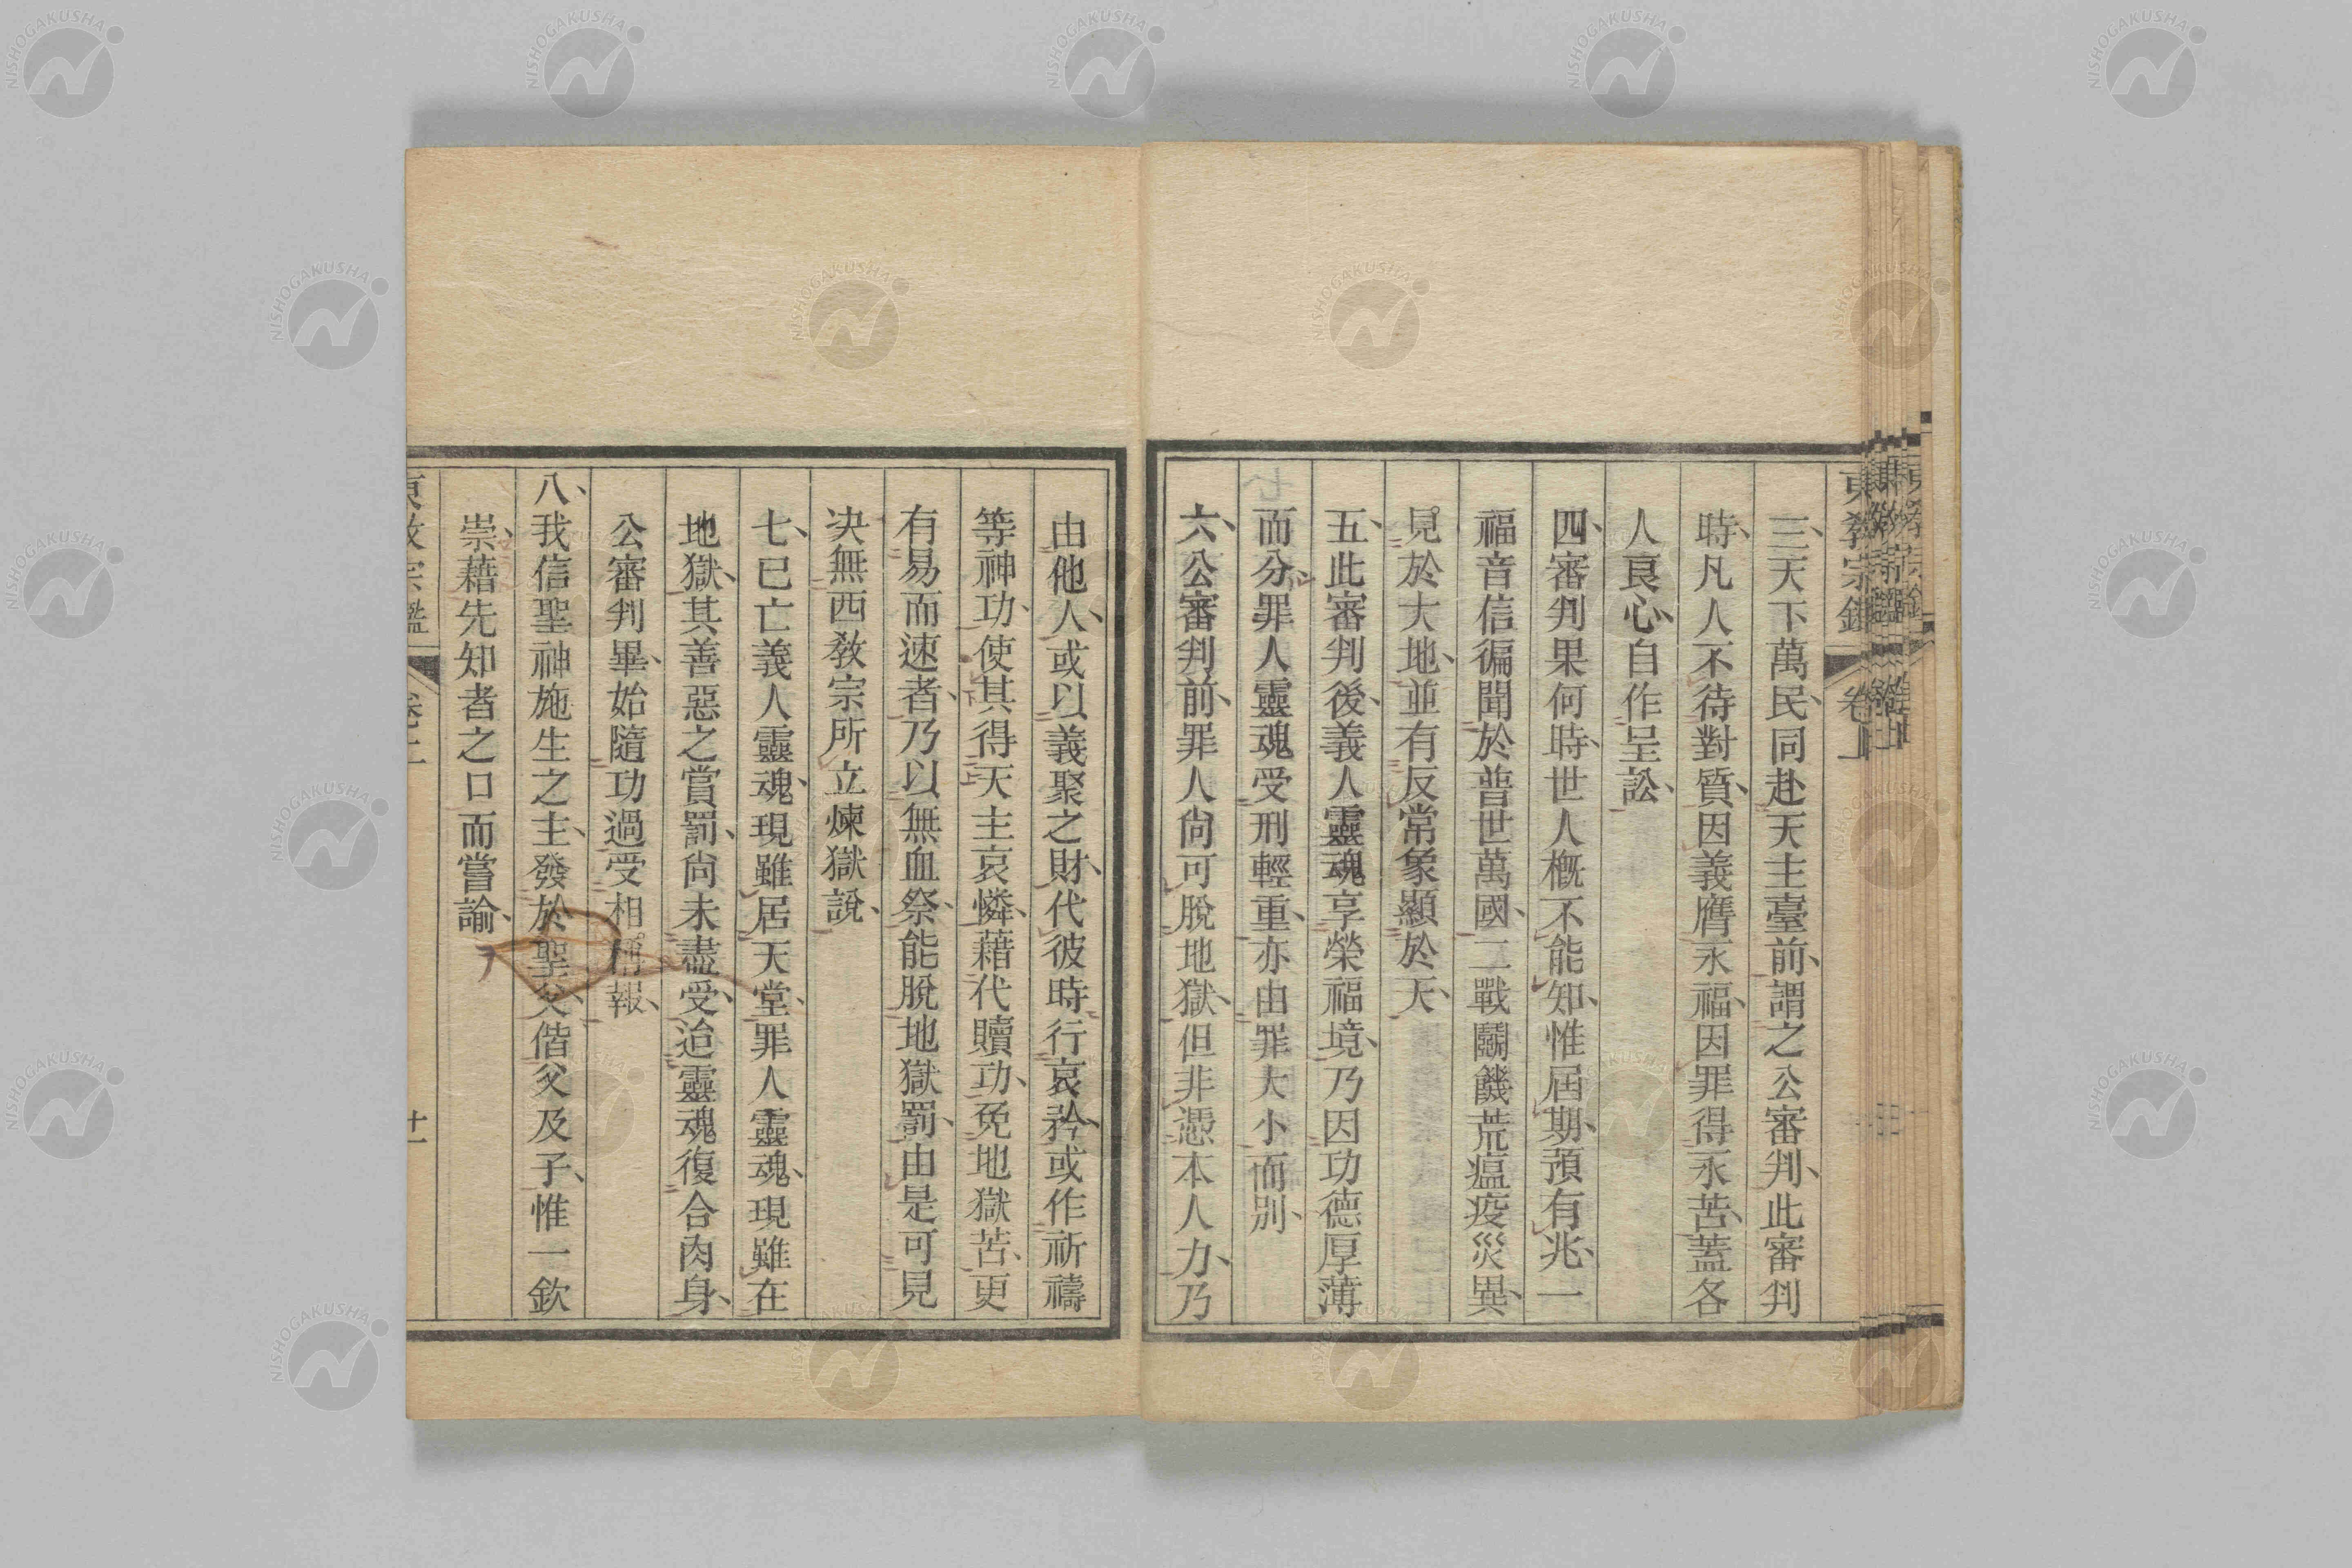 三天下萬民同赴天主臺前謂之公審判此審判
時凡人不待對質因義膺永福因罪得永苦蓋各
人良心自作呈訟
四審判果何時世人概不能知惟屆期預有兆一
福音信徧聞於普世萬國二戰鬭饑荒瘟疫災異
見於大地並有反常象顯於天
五此審判後義人靈魂享榮福境乃因功德厚薄
而分罪人靈魂受刑輕重亦由罪大小而別
六公審判前罪人尙可脫地獄但非憑本人力乃
由他人或以義聚之財代彼時行哀矜或作祈禱
等神功使其得天主哀憐藉代贖功免地獄苦更
有易而速者乃以無血祭能脫地獄罰由是可見
决無西敎宗所立煉獄說
七已亡義人靈魂現雖居天堂罪人靈魂現雖在
地獄其善惡之賞罰尙未盡受迨靈魂復合肉身
公審判畢始隨功過受相稱報
八我信聖神施生之主發於聖父偕父及子惟一欽
崇藉先知者之口而嘗諭
東敎宗鑑 卷上 廿一
NISHOGAKUSHA